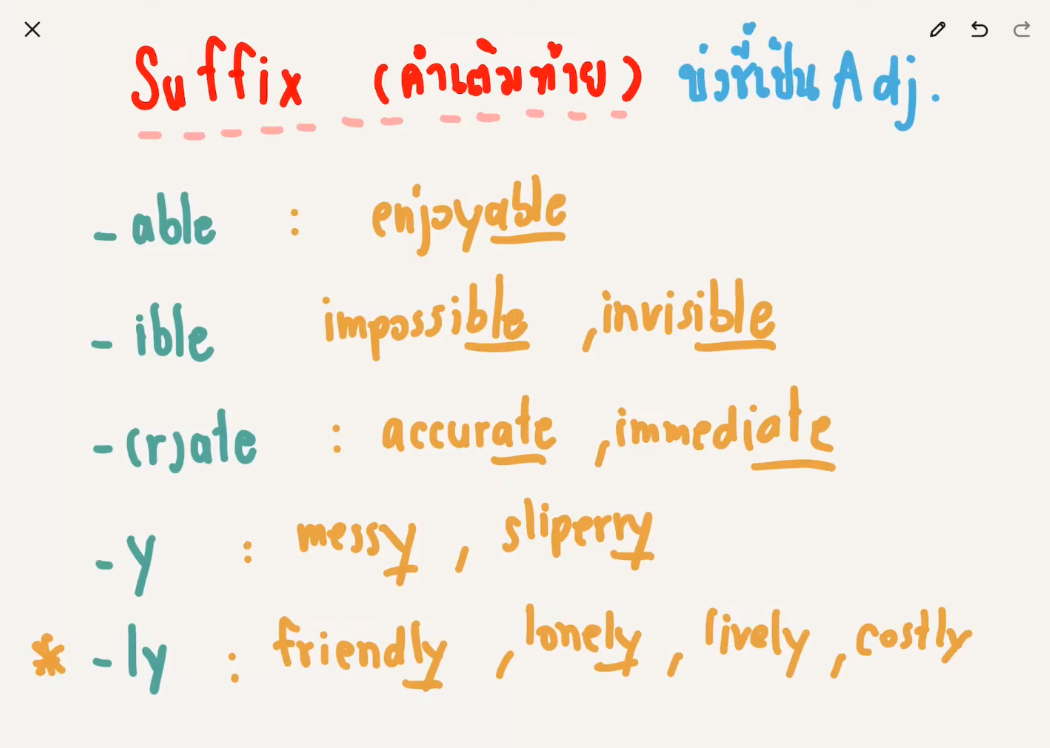 Suffix (คำเติมท้าย) บ่งชี้เป็น Adj.
- able : enjoyable
- ible impossible , invisible
- (r)ate : accurate , immediate
- y : messy , sliperry
* - ly : friendly , lonely , lively , costly